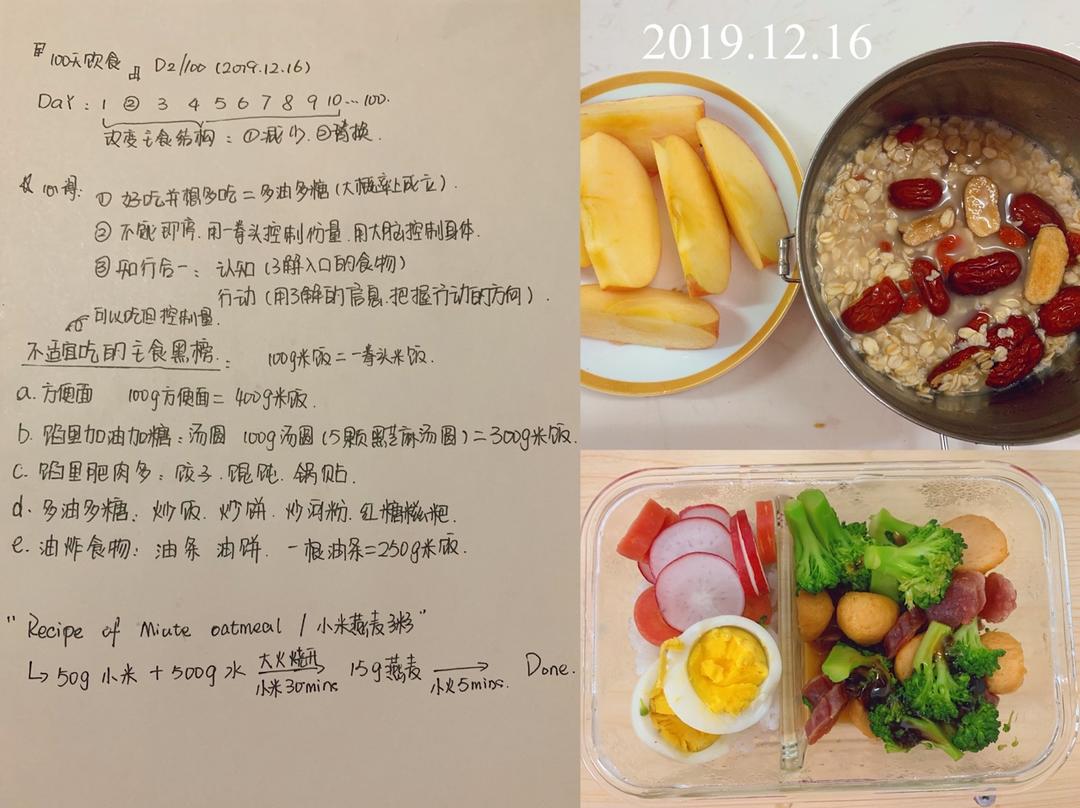 『100天饮食』 D2//100 (2019.12.16)
DaY: 1 ② 3 4 5 6 7 8 9 10 ... 100.
改变主食结构: ①减少. ②替换.
①好吃并想多吃=多油多糖(大概率上成立).
②不饿即停. 用一拳头控制份量. 用大脑控制身体.
③知行合一: 认知(了解入口的食物)
行动(用了解的信息. 把握行动的方向).
可以吃但控制量.
不适宜吃的主食黑榜: 100g米饭=一拳头米饭.
a. 方便面 100g方便面=400g米饭.
b. 馅里加油加糖: 汤圆 100g汤圆(5颗黑芝麻汤圆)=300g米饭.
c. 馅里肥肉多: 饺子. 馄饨. 锅贴.
d. 多油多糖: 炒饭. 炒饼. 炒河粉. 红糖糍粑.
e. 油炸食物: 油条 油饼. 一根油条=250g米饭.
"Recipe of Miute oatmeal / 小米燕麦粥"
↳ 50g 小米 + 500g 水 大火烧开 小火30mins → 15g 燕麦 → 小火5mins. Done.
2019.12.16